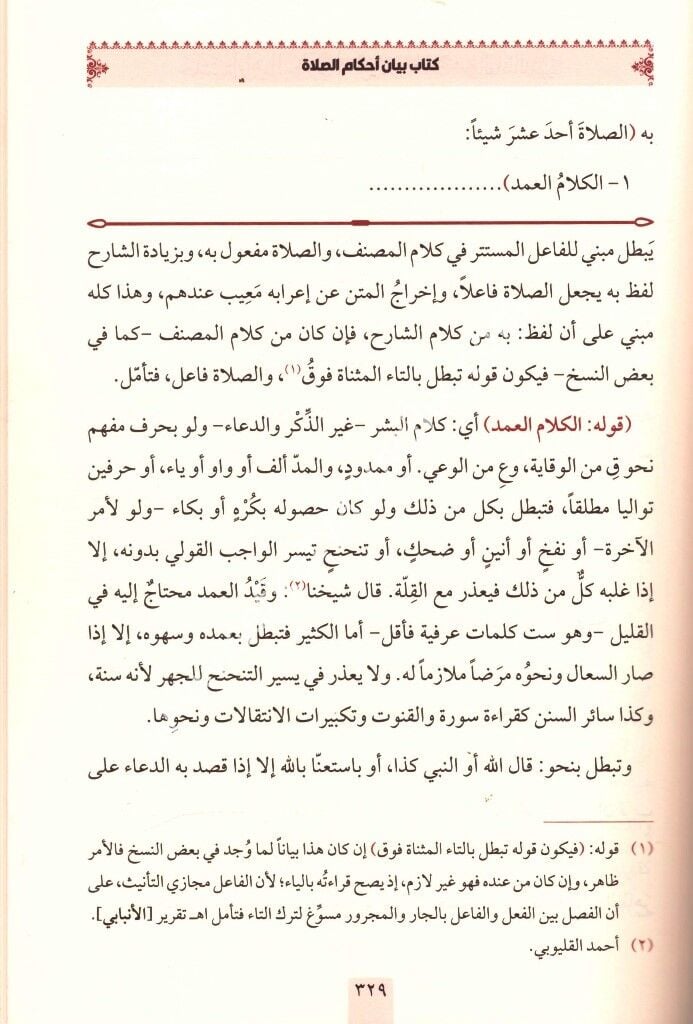 كتاب بيان أحكام الصلاة
به (الصلاةَ أحدَ عشرَ شيئاً:
١- الكلامُ العمد)...................
يَبطل مبني للفاعل المستتر في كلام المصنف، والصلاة مفعول به، وبزيادة الشارح
لفظ به يجعل الصلاة فاعلاً، وإخراجُ المتن عن إعرابه مَعِيب عندهم، وهذا كله
مبني على أن لفظ: به من كلام الشارح، فإن كان من كلام المصنف -كما في
بعض النسخ- فيكون قوله تبطل بالتاء المثناة فوقُ(١)، والصلاة فاعل، فتأمّل.
(قوله: الكلام العمد) أي: كلام البشر -غير الذِّكْر والدعاء- ولو بحرف مفهم
نحو قِ من الوقاية، وعِ من الوعي. أو ممدودٍ، والمدّ ألف أو واو أو ياء، أو حرفين
تواليا مطلقاً، فتبطل بكل من ذلك ولو كان حصوله بكُرْهٍ أو بكاء -ولو لأمر
الآخرة- أو نفخٍ أو أنينٍ أو ضحكٍ، أو تنحنحٍ تيسر الواجب القولي بدونه، إلا
إذا غلبه كلٌّ من ذلك فيعذر مع القِلّة. قال شيخنا(٢): وقَيْدُ العمد محتاجٌ إليه في
القليل -وهو ست كلمات عرفية فأقل- أما الكثير فتبطل بعمده وسهوه، إلا إذا
صار السعال ونحوُه مرَضاً ملازماً له. ولا يعذر في يسير التنحنح للجهر لأنه سنة،
وكذا سائر السنن كقراءة سورة والقنوت وتكبيرات الانتقالات ونحوِها.
وتبطل بنحو: قال الله أو النبي كذا، أو باستعنّا بالله إلا إذا قصد به الدعاء على
(١) قوله: (فيكون قوله تبطل بالتاء المثناة فوق) إن كان هذا بياناً لما وُجد في بعض النسخ فالأمر
ظاهر، وإن كان من عنده فهو غير لازم، إذ يصح قراءتُه بالياء؛ لأن الفاعل مجازي التأنيث، على
أن الفصل بين الفعل والفاعل بالجار والمجرور مسوِّغ لترك التاء فتأمل اهـ تقرير [الأنبابي].
(٢) أحمد القليوبي.
٣٢٩